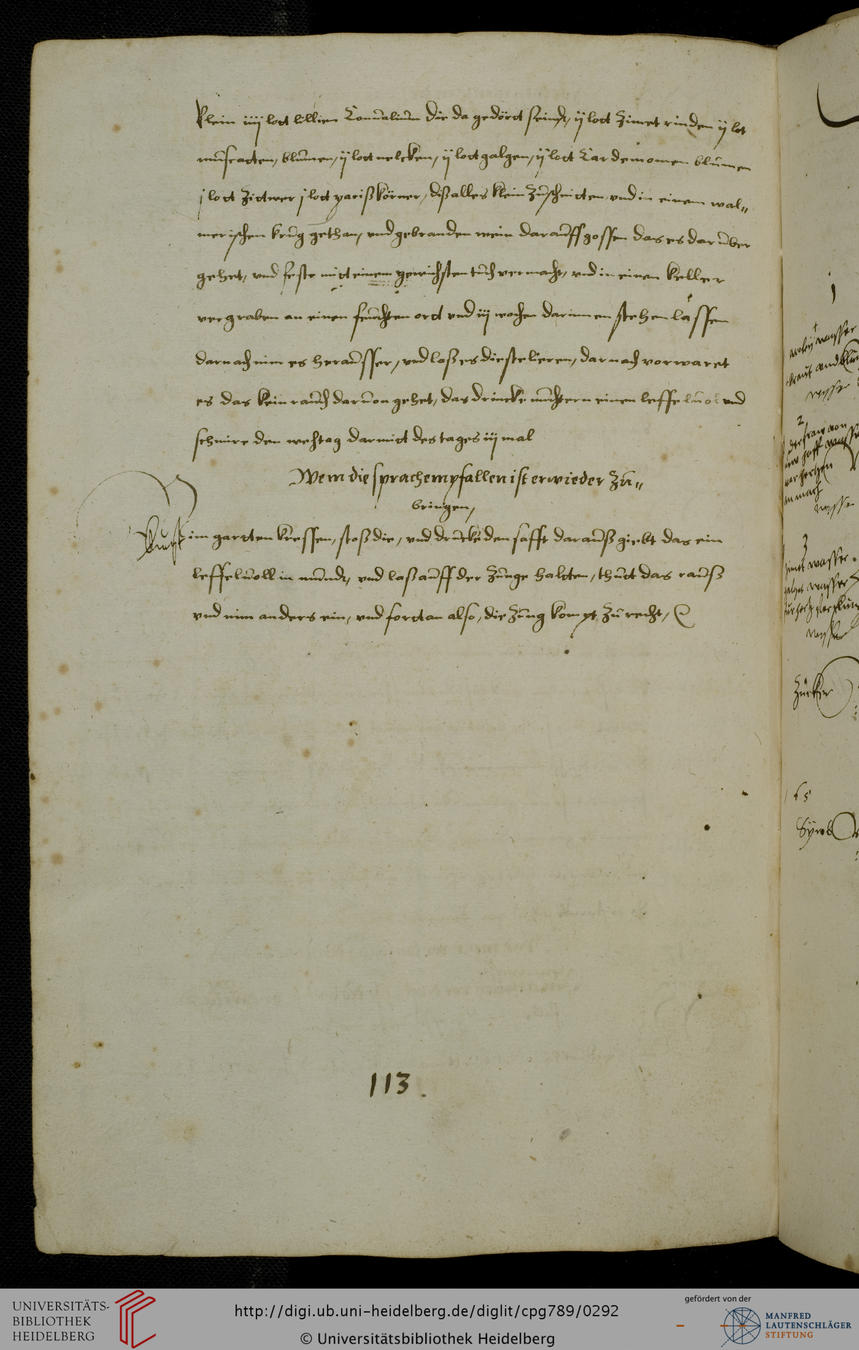 klein iiij lott lillien Conualium die da gedörtt seindt, ij lott Zimet rinden ij lot
muscatten, blumen, ij lott nelcken, ij lott galgen, ij lott Cardemomen blumen
j lott Zittwer j lott parißkörner, diß alles klein Zuschnitten vnd in einem wal„
nerischen krug gethan, vnd gebranden wein darauff gossen das es daruber
gehet, vnd feste mitt einem gewichsten tuch vermacht, vnd in einen keller
vergraben an einen feuchten ortt vnd iij wochen darinnen stehen lassen
darnach nim es heraußer, vnd laß es distelieren, darnach vorwaret
es das kein rauch daruon gehet, das drincke nuchtern einen leffel uol vnd
schmire den wehtag darmitt des tages iij mal
Wem die sprach empfallen ist er wieder Zu„
bringen,
im gartten kressen, stoß die, vnd drucke den safft darauß giebt das ein
leffel uoll in mundt, vnd laß auff der Zunge haltten, thutt das rauß
vnd nim anders ein, vnd forttan also, die Zung kompt Zu recht,
113
1
2
3
wasser
Zucker
UNIVERSITÄTS-
BIBLIOTHEK
HEIDELBERG
http://digi.ub.uni-heidelberg.de/diglit/cpg789/0292
© Universitätsbibliothek Heidelberg
gefördert von der
MANFRED
LAUTENSCHLÄGER
STIFTUNG